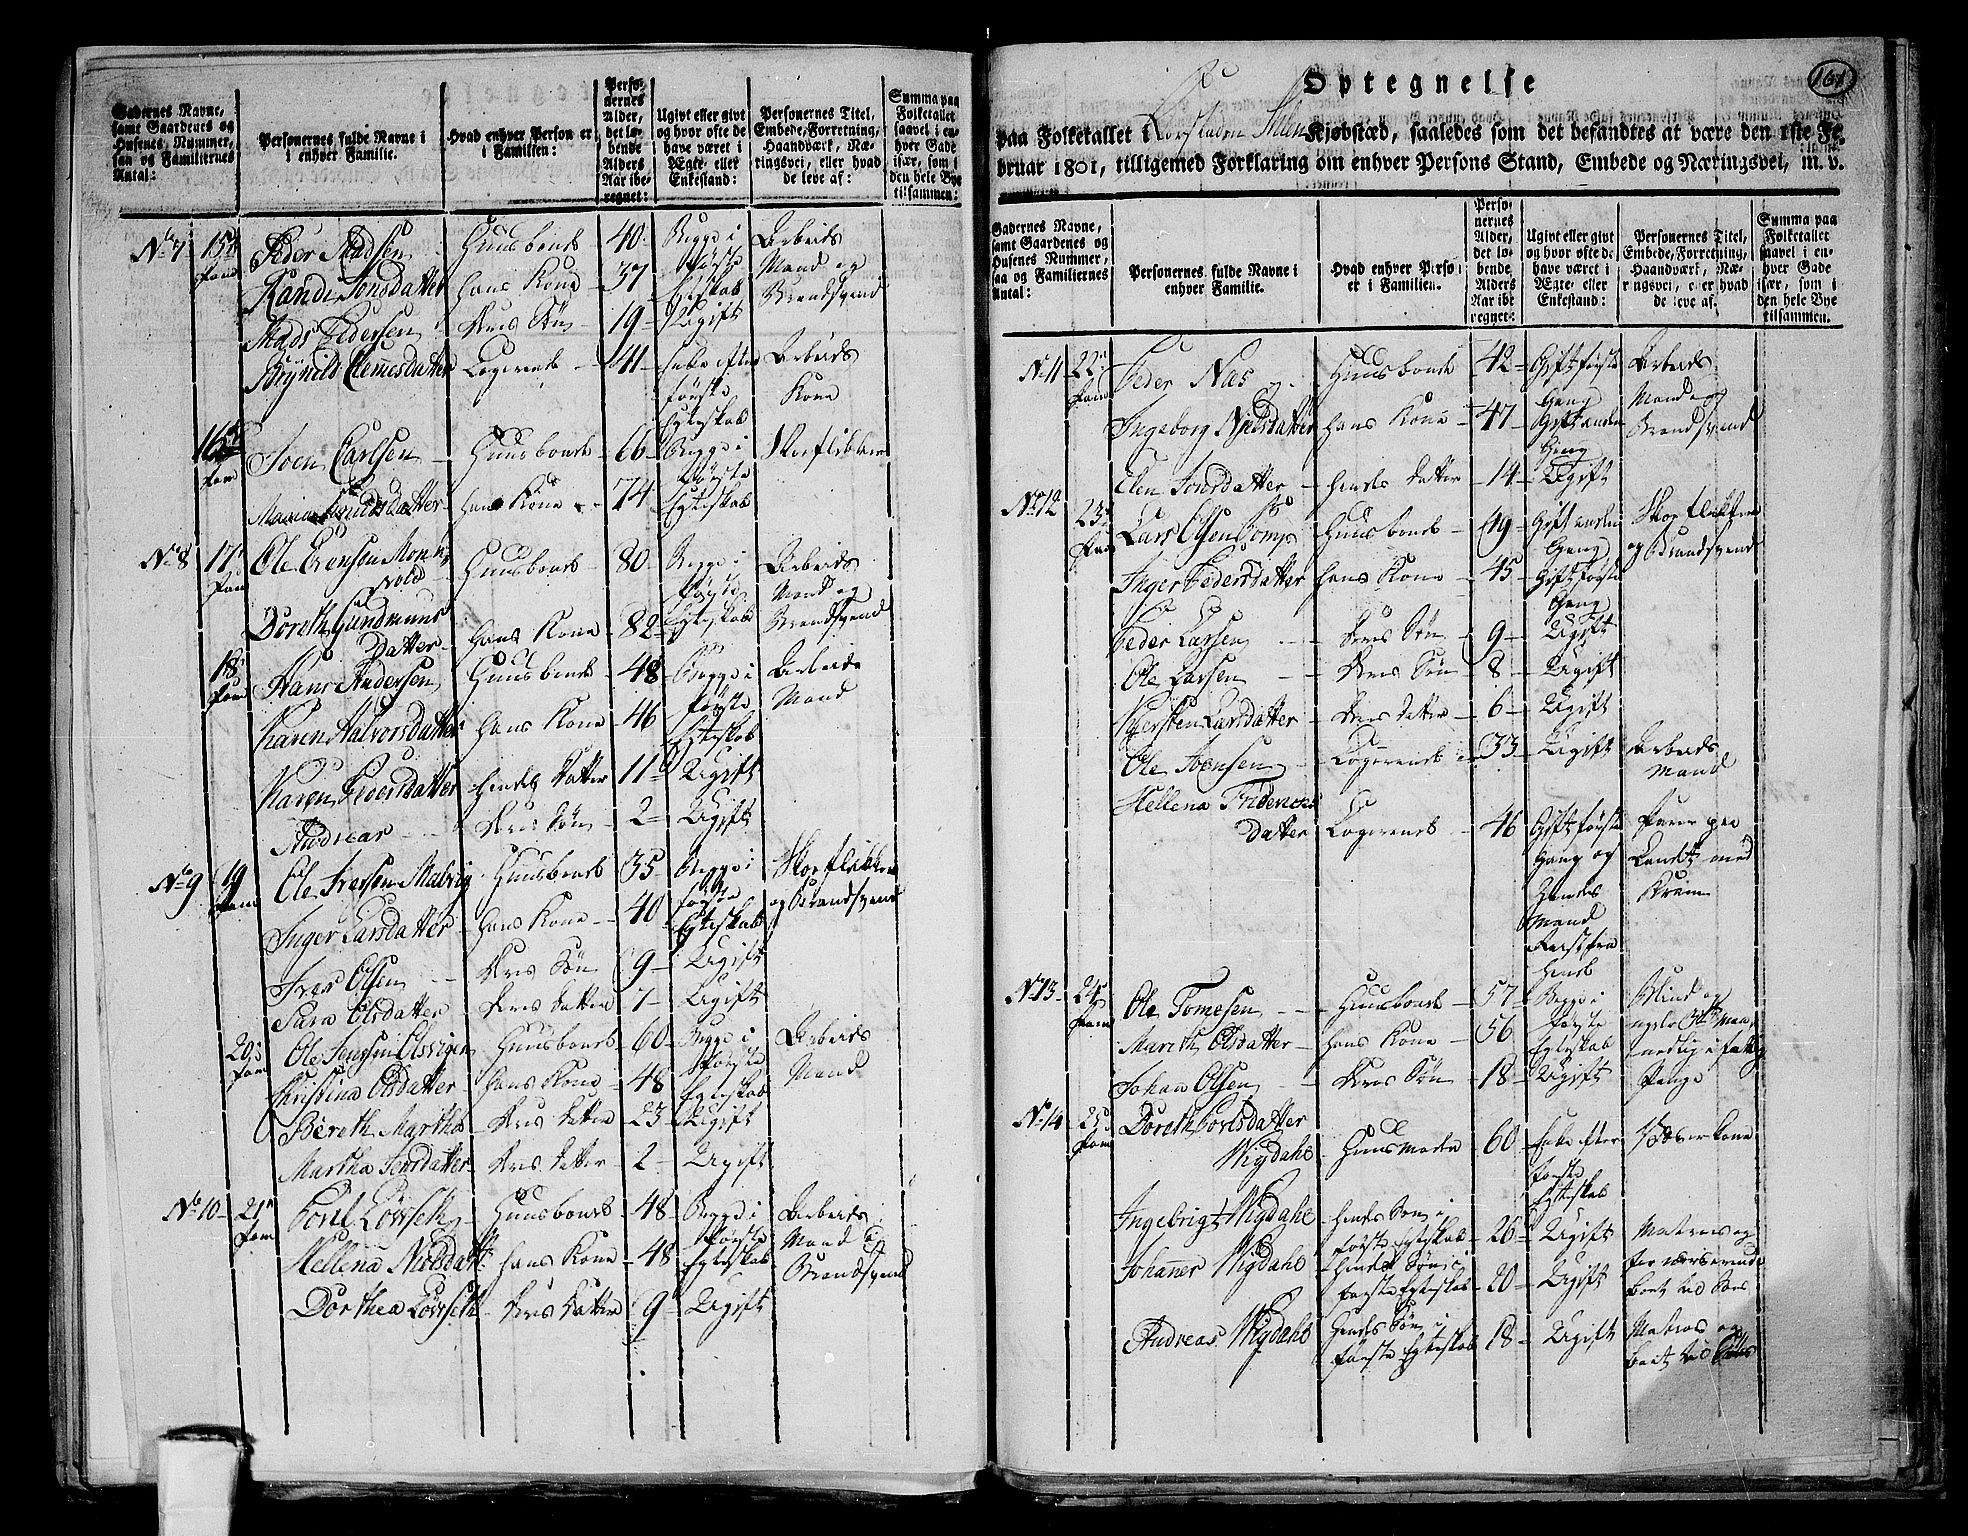 Gadernes Navne, samt Gaardenes og Husenes Nummer, saa og Familiernes Antal:
Personernes fulde Navne i enhver Familie.
Hvad enhver Person er i Familien:
Personernes Alder, det løbende Alders Aar iberegnet:
Ugivt eller givt og hvor ofte de have været i Ægte- eller Enkestand:
Personernes Titel, Embede, Forretning, Haandværk, Næringsvei, eller hvad de leve af:
Summa paa Folketallet saavel i enhver Gade især, som i den hele Bye tilsammen:
No 7 15de Fam Peder Madsen Huusbonde 40 Begge i Første Egteskab Arbeids Mand og Brandsvend
Rande Jonsdatter hans Kone 37
Mads Pedersen deres Søn 19 Ugift
Brynild Clemesdatter Logerende 41 Enke efter første Egteskab Arbeids Kone
16de Fam Joen Carlsen Huusbonde 66 Begge i Første Egteskab Skoeflikker
Maria Knudsdatter hans Kone 74
No 8 17de Fam Ole Evensen Huusbonde 80 Begge i Første Egteskab Arbeids Mand og Brandsvend
Doreth Gundmunds Datter hans Kone 82
18de Fam Hans Andersen Huusbonde 48 Begge i Første Egteskab Arbeids Mand
Karen Halvorsdatter hans Kone 46
Karen Pedersdatter hendes Datter 11 Ugift
Andreas deres Søn 2 Ugift
No 9 19 Fam Ole Iversen Malvig Huusbonde 35 Begge i første Egteskab Skoeflikker og Brandsvend
Inger Larsdatter hans Kone 40
Iver Olsen deres Søn 9 Ugift
Sara Olsdatter deres Datter 7 Ugift
20de Fam Ole Jensen Huusbonde 60 Begge i Første Egteskab Arbeids Mand
Christina Olsdatter hans Kone 48
Bereth Martha deres Datter 23 Ugift
Martha Jensdatter deres Datter 2 Ugift
No 10 21de Fam Poul Løvseth Huusbonde 48 Begge i Første Egteskab Arbeids Mand og Brandsvend
Hellena Nielsdatter hans Kone 48
Dorthea Løvseth deres Datter 9 Ugift
161
Optegnelse
paa Folketallet i Kiøbstad, saaledes som det befandtes at være den 1ste Februar 1801, tilligemed Forklaring om enhver Persons Stand, Embede og Næringsvei, m. v.
Gadernes Navne, samt Gaardenes og Husenes Nummer, saa og Familiernes Antal:
Personernes fulde Navne i enhver Familie.
Hvad enhver Person er i Familien.
Personernes Alder, det løbende Alders Aar iberegnet:
Ugivt eller givt og hvor ofte de have været i Ægte- eller Enkestand:
Personernes Titel, Embede, Forretning, Haandværk, Næringsvei, eller hvad de leve af.
Summa paa Folketallet saavel i enhver Gade især, som i den hele Bye tilsammen.
No 11 22de Fam Peder Nas Huusbonde 42 Gift første Gang Arbeids Mand og Brandsvend
Ingeborg Nielsdatter hans Kone 47 Gift anden Gang
Elen Jonsdatter hendes Datter 14 Ugift
No 12 23de Fam Lars Olsen Huusbonde 49 Gift anden Gang Skoeflikker og Brandsvend
Inger Pedersdatter hans Kone 45 Gift første Gang
Peder Larsen deres Søn 9 Ugift
Ole Larsen deres Søn 8 Ugift
Kjersten Larsdatter deres Datter 6 Ugift
Ole Joensen Logerende 33 Ugift Arbeids Mand
Hellena Friderichs Datter Logerende 46 Gift første Gang og hendes Mand Reist fra hende Farer paa Landet med Kram
No 13 24de Fam Ole Tomesen Huusbonde 57 Begge i Første Egteskab Blind og
Mareth Olsdatter hans Kone 56
Johan Olsen deres Søn 18 Ugift
No 14 25de Fam Doreth Wigdahl Huusmoder 60 Enke efter første Egteskab
Ingebrigt Wigdahl hendes Søn i første Egteskab 26 Ugift Matros og
Johanner Wigdahl hendes Søn i første Egteskab 20 Ugift
Andreas Wigdahl hendes Søn i første Egteskab 18 Ugift Matros og